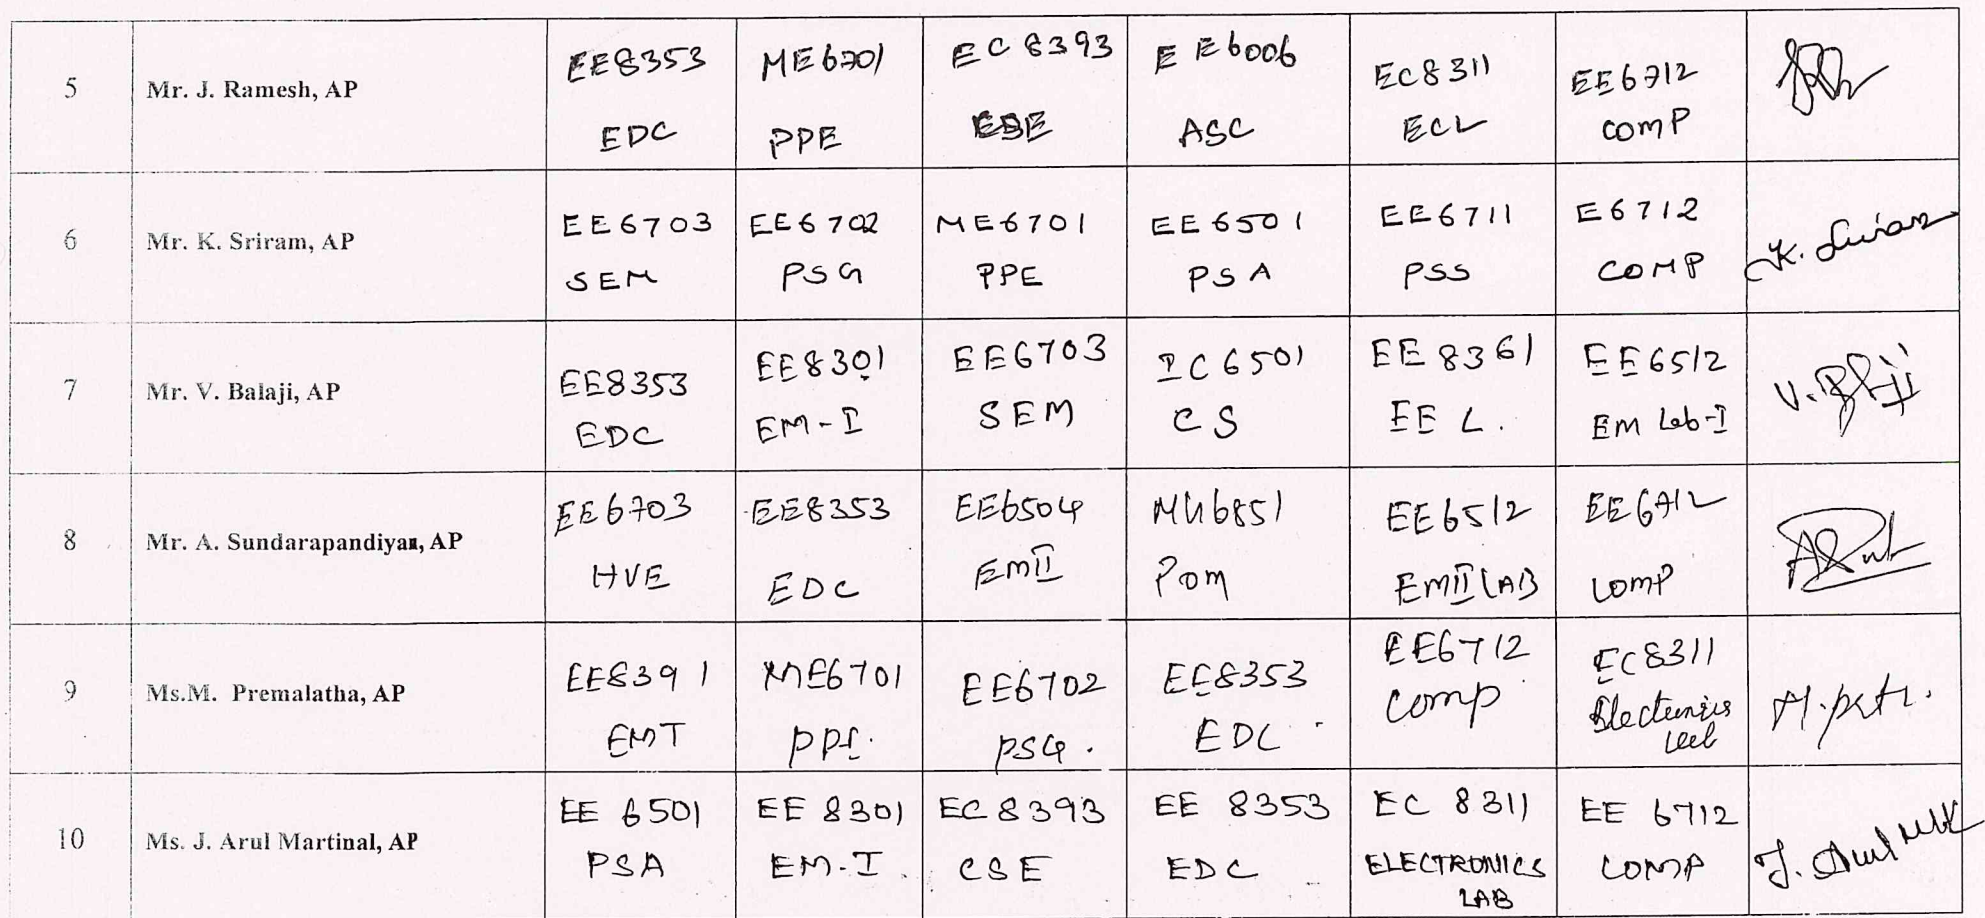 5
Mr. J. Ramesh, AP
EE8353
EDC
ME6701
PPE
EC8393
EE6006
ASC
EC8311
ECL
EE6712
COMP
6
Mr. K. Sriram, AP
EE6703
SEM
EE6702
PSG
ME6701
PPE
EE6501
PSA
EE6711
PSS
E6712
COMP
K. Sriram
7
Mr. V. Balaji, AP
EE8353
EDC
EE8301
EM-I
EE6703
SEM
IC6501
CS
EE8361
EE L.
EE6512
EM Lab-I
V.
8
Mr. A. Sundarapandiyan, AP
EE6703
HVE
EE8353
EDC
EE6504
EMII
MG6851
Pom
EE6512
EMII LAB
EE6712
COMP
9
Ms.M. Premalatha, AP
EE8391
EMT
ME6701
PPE.
EE6702
PSG.
EE8353
EDC
EE6712
Comp
EC8311
Electronics
10
Ms. J. Arul Martinal, AP
EE 6501
PSA
EE 8301
EM-I
EC8393
CSE
EE 8353
EDC
EC 8311
ELECTRONICS
LAB
EE 6712
COMP
J. Arul